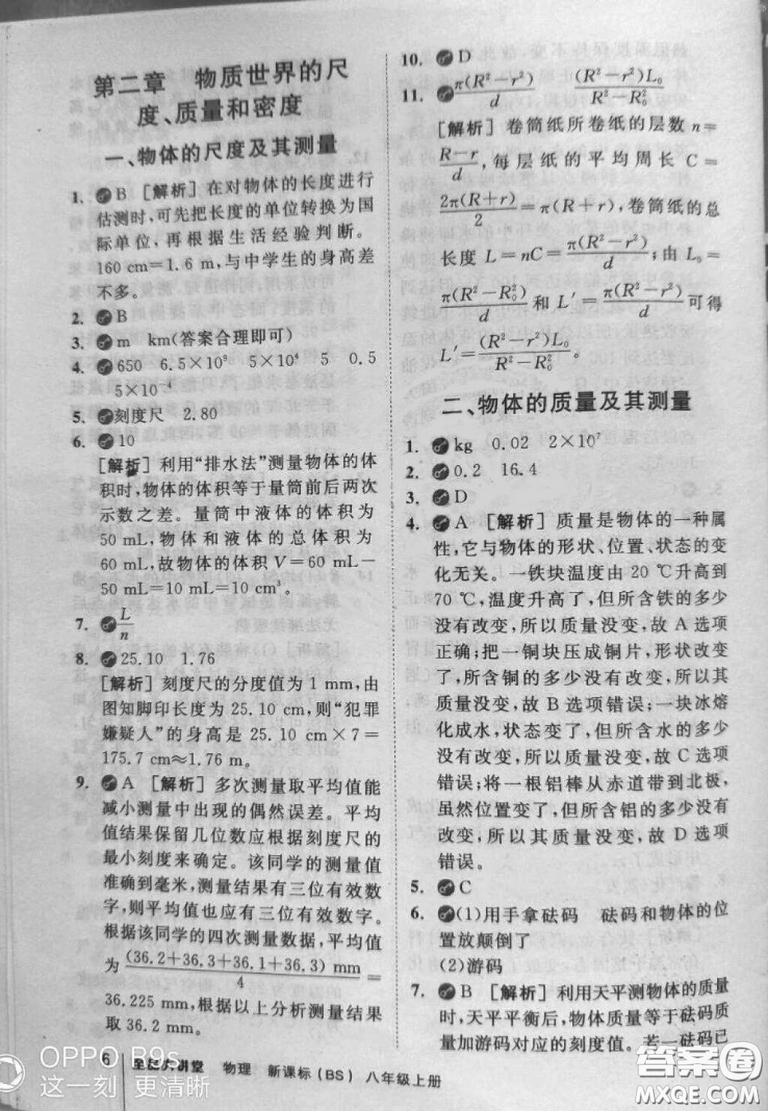 第二章 物质世界的尺
度、质量和密度
一、物体的尺度及其测量
1. B [解析]在对物体的长度进行
估测时,可先把长度的单位转换为国
际单位,再根据生活经验判断。
160 cm=1.6 m,与中学生的身高差
不多。
2. B
3. m km(答案合理即可)
4. 650 6.5×10⁸ 5×10⁴ 5 0.5
5×10⁻⁴
5. 刻度尺 2.80
6. 10
[解析]利用“排水法”测量物体的体
积时,物体的体积等于量筒前后两次
示数之差。量筒中液体的体积为
50 mL,物体和液体的总体积为
60 mL,故物体的体积 V=60 mL-
50 mL=10 mL=10 cm³。
7. L/n
8. 25.10 1.76
[解析]刻度尺的分度值为 1 mm,由
图知脚印长度为 25.10 cm,则“犯罪
嫌疑人”的身高是 25.10 cm×7=
175.7 cm≈1.76 m。
9. A [解析]多次测量取平均值能
减小测量中出现的偶然误差。平均
值结果保留几位数应根据刻度尺的
最小刻度来确定。该同学的测量值
准确到毫米,测量结果有三位有效数
字,则平均值也应有三位有效数字。
根据该同学的四次测量数据,平均值
为 (36.2+36.3+36.1+36.3) mm/4 =
36.225 mm,根据以上分析测量结果
取 36.2 mm。
10. D
11. π(R²-r²)/d (R²-r²)L₀/(R²-R₀²)
[解析]卷筒纸所卷纸的层数 n=
(R-r)/d,每层纸的平均周长 C=
2π(R+r)/2=π(R+r),卷筒纸的总
长度 L=nC=π(R²-r²)/d;由 L₀=
π(R²-R₀²)/d 和 L′=π(R²-r²)/d 可得
L′=(R²-r²)L₀/(R²-R₀²)。
二、物体的质量及其测量
1. kg 0.02 2×10⁷
2. 0.2 16.4
3. D
4. A [解析]质量是物体的一种属
性,它与物体的形状、位置、状态的变
化无关。一铁块温度由 20 ℃升高到
70 ℃,温度升高了,但所含铁的多少
没有改变,所以质量不变,故 A 选项
正确;把一铜块压成铜片,形状改变
了,所含铜的多少没有改变,所以其
质量不变,故 B 选项错误;一块冰熔
化成水,状态变了,但所含水的多少
没有改变,所以质量不变,故 C 选项
错误;将一根铝棒从赤道带到北极,
虽然位置变了,但所含铝的多少没有
改变,所以其质量没变,故 D 选项
错误。
5. C
6. (1)用手拿砝码 砝码和物体的位
置放颠倒了
(2)游码
7. B [解析]利用天平测物体的质量
时,天平平衡后,物体质量等于砝码质
量与游码质量的和。若一砝码已
6 全程大讲堂 物理 新课标(BS) 八年级上册
OPPO R9s
这一刻 更清晰
答案圈